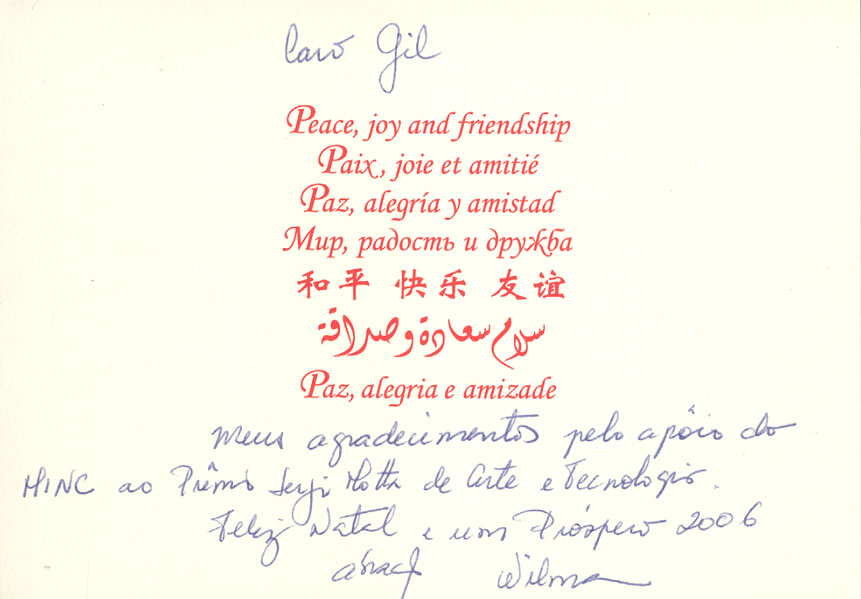 Caro Gil
Peace, joy and friendship
Paix, joie et amitié
Paz, alegría y amistad
Мир, радость и дружба
和平 快乐 友谊
سلام سعادة وصداقة
Paz, alegria e amizade
Meus agradecimentos pelo apôio do
MINC ao Prêmio Sergi Motta de Arte e Tecnologia.
Feliz Natal e um Próspero 2006
Wilma